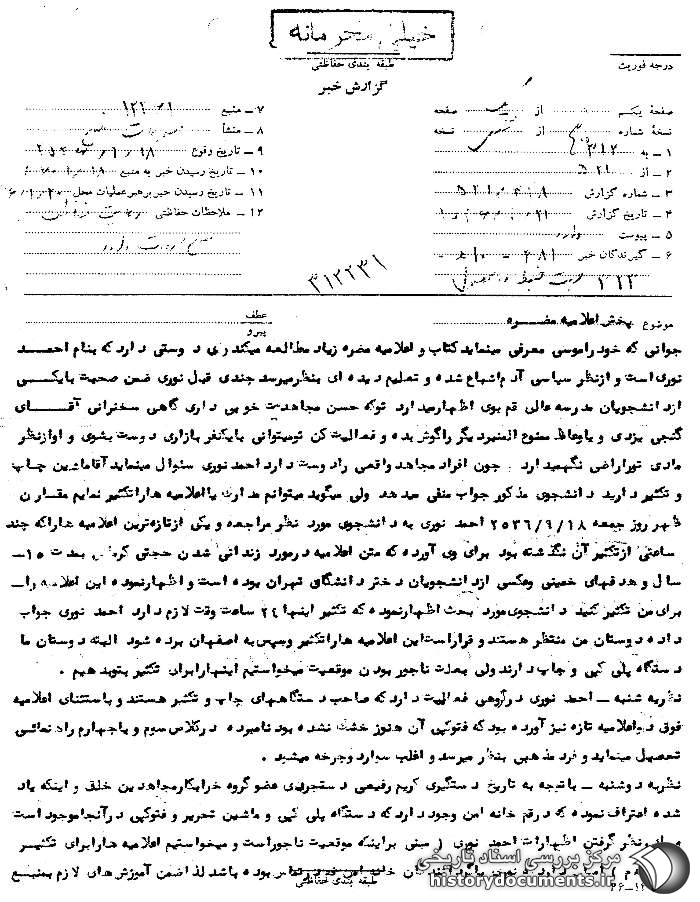 خیلی محرمانه
طبقه بندی حفاظتی
گزارش خبر
درجه فوریت
صفحه یکم از صفحه
نسخه شماره از نسخه
۱ – به ۳۱۲
۲ – از ۵۲۱
۳ – شماره گزارش
۴ – تاریخ گزارش
۵ – پیوست
۶ – گیرندگان خبر
۷ – منبع
۸ – منشأ
۹ – تاریخ وقوع
۱۰ – تاریخ رسیدن خبر به منبع
۱۱ – تاریخ رسیدن خبر برهبر عملیات محل
۱۲ – ملاحظات حفاظتی
۳۱۲۲۳۱
موضوع پخش اعلامیه مضره
عطف
پیرو
جوانی که خود را موسی معرفی مینماید کتاب و اعلامیه مضره زیاد مطالعه میکند وی دوستی دارد که بنام احمد
نوری است و از نظر سیاسی آدم اشباع شده و تعلیم دیده ای بنظر میرسد چندی قبل نوری ضمن صحبت با یکی
از دانشجویان مدرسه عالی قم بوی اظهار میدارد تو که حسن مجاهدیت خوبی داری گاهی سخنرانی آقای
گنجی یزدی و یا وعاظ ممنوع المنبر دیگر را گوش بده و فعالیت کن تو میتوانی با یکنفر بازاری دوست بشوی و او از نظر
مادی تو را راضی نگهمیدارد . چون افراد مجاهد واقعی را دوست دارد احمد نوری سئوال مینماید آقا ماشین چاپ
و تکثیر دارید دانشجوی مذکور جواب منفی میدهد ولی میگوید میتوانم مدارک یا اعلامیه ها را تکثیر نمایم مقارن
ظهر روز جمعه ۲۵۳۶/۶/۱۸ احمد نوری به دانشجوی مورد نظر مراجعه و یکی از تازه‌ترین اعلامیه ها را که چند
ساعتی از تکثیر آن نگذشته بود برای وی آورده که متن اعلامیه در مورد زندانی شدن حجتی کرمانی بمدت ۱۵–
سال و هدفهای خمینی و عکسی از دانشجویان دختر دانشگاه تهران بوده است و اظهار نموده این اعلامیه را–
برای من تکثیر کنید دانشجوی مورد بحث اظهار نموده که تکثیر اینها ۲۴ ساعت وقت لازم دارد احمد نوری جواب
داده دوستان من منتظر هستند و قرار است این اعلامیه ها را تکثیر و سپس به اصفهان برده شود البته دوستان ما
دستگاه پلی کپی و چاپ دارند ولی بعلت ناجور بودن موقعیت میخواستیم اینها را برای تکثیر بتو بدهیم .
نظریه شنبه – احمد نوری در گروهی فعالیت دارد که صاحب دستگاههای چاپ و تکثیر هستند و باستثنای اعلامیه
فوق دو اعلامیه تازه نیز آورده بود که فتوکپی آن هنوز خشک نشده بود نامبرده در کلاس سوم و یا چهارم راهنمائی
تحصیل مینماید و فرد مذهبی بنظر میرسد و اغلب سوار دوچرخه میشود .
نظریه دوشنبه – با توجه به تاریخ دستگیری کریم رفیعی دستجردی عضو گروه خرابکار مجاهدین خلق و اینکه یاد
شده اعتراف نموده که در قم خانه امن وجود دارد که دستگاه پلی کپی و ماشین تحریر و فتوکپی در آنجا موجود است
نظر گرفتن اظهارات احمد نوری ( مبنی بر اینکه موقعیت ناجور است و میخواستیم اعلامیه ها را برای تکثیر
باشد لذا ضمن آموزش‌های لازم بمنبع
طبقه بندی حفاظتی
مرکز بررسی اسناد تاریخی
historydocuments.ir